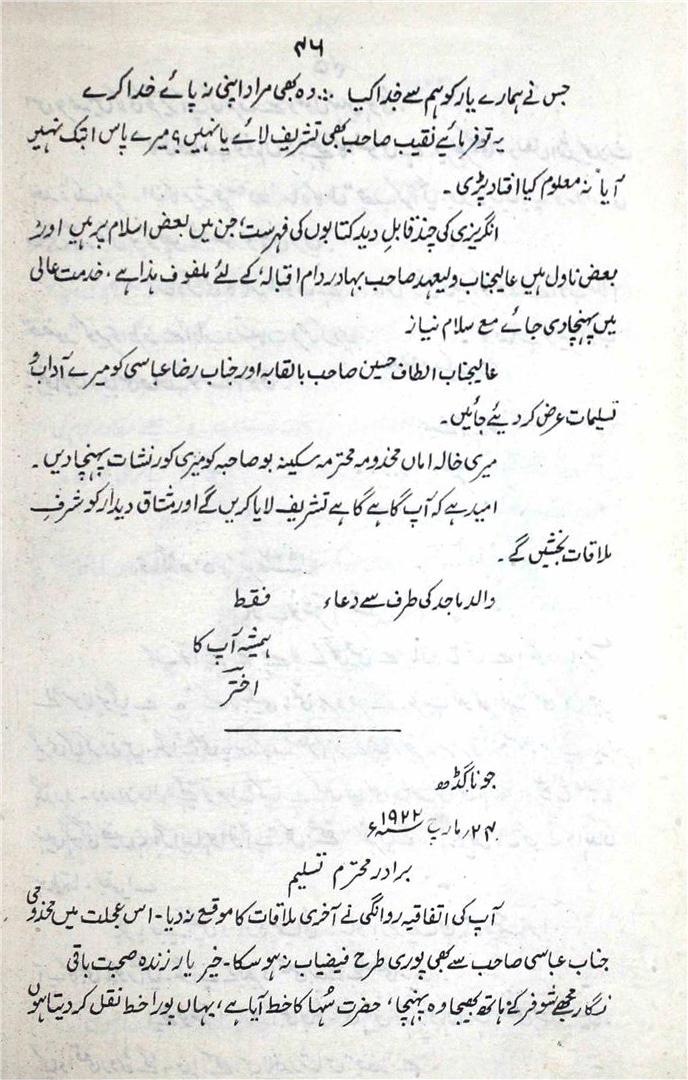 ۴۶
جس نے ہمارے یار کو ہم سے جدا کیا ؞ وہ بھی مراد اپنی نہ پائے خدا کرے
یہ تو فرمائیے نقیب صاحب بھی تشریف لائے یا نہیں؟ میرے پاس ابتک نہیں
آیا نہ معلوم کیا افتاد پڑی۔
انگریزی کی چند قابلِ دید کتابوں کی فہرست؛ جن میں بعض اسلام پر ہیں اور
بعض ناول ہیں عالیجناب ولیعہد صاحب بہادر دام اقبالہٗ کے لئے ملفوف ہذا ہے، خدمت عالی
میں پہنچا دی جائے مع سلام نیاز
عالیجناب الطاف حسین صاحب بالقابہ اور جناب رضا عباسی کو میرے آداب و
تسلیمات عرض کر دیئے جائیں۔
میری خالہ اماں مخدومہ محترمہ سکینہ بو صاحبہ کو میری کورنشات پہنچا دیں۔
امید ہے کہ آپ گاہے گاہے تشریف لایا کریں گے اور مشتاق دیدار کو شرفِ
ملاقات بخشیں گے۔
والد ماجد کی طرف سے دعاء فقط
ہمیشہ آپ کا
اختر
جوناگڈھ
۲۴ مارچ ۱۹۲۲ء
برادر محترم تسلیم
آپ کی اتفاقیہ روانگی نے آخری ملاقات کا موقع نہ دیا۔ اس عجلت میں مخدومی
جناب عباسی صاحب سے بھی پوری طرح فیضیاب نہ ہو سکا۔ خیر یار زندہ صحبت باقی
نگار مجھے شوفر کے ہاتھ بھیجا وہ پہنچا، حضرت سُہا کا خط آیا ہے، یہاں پورا خط نقل کر دیتا ہوں